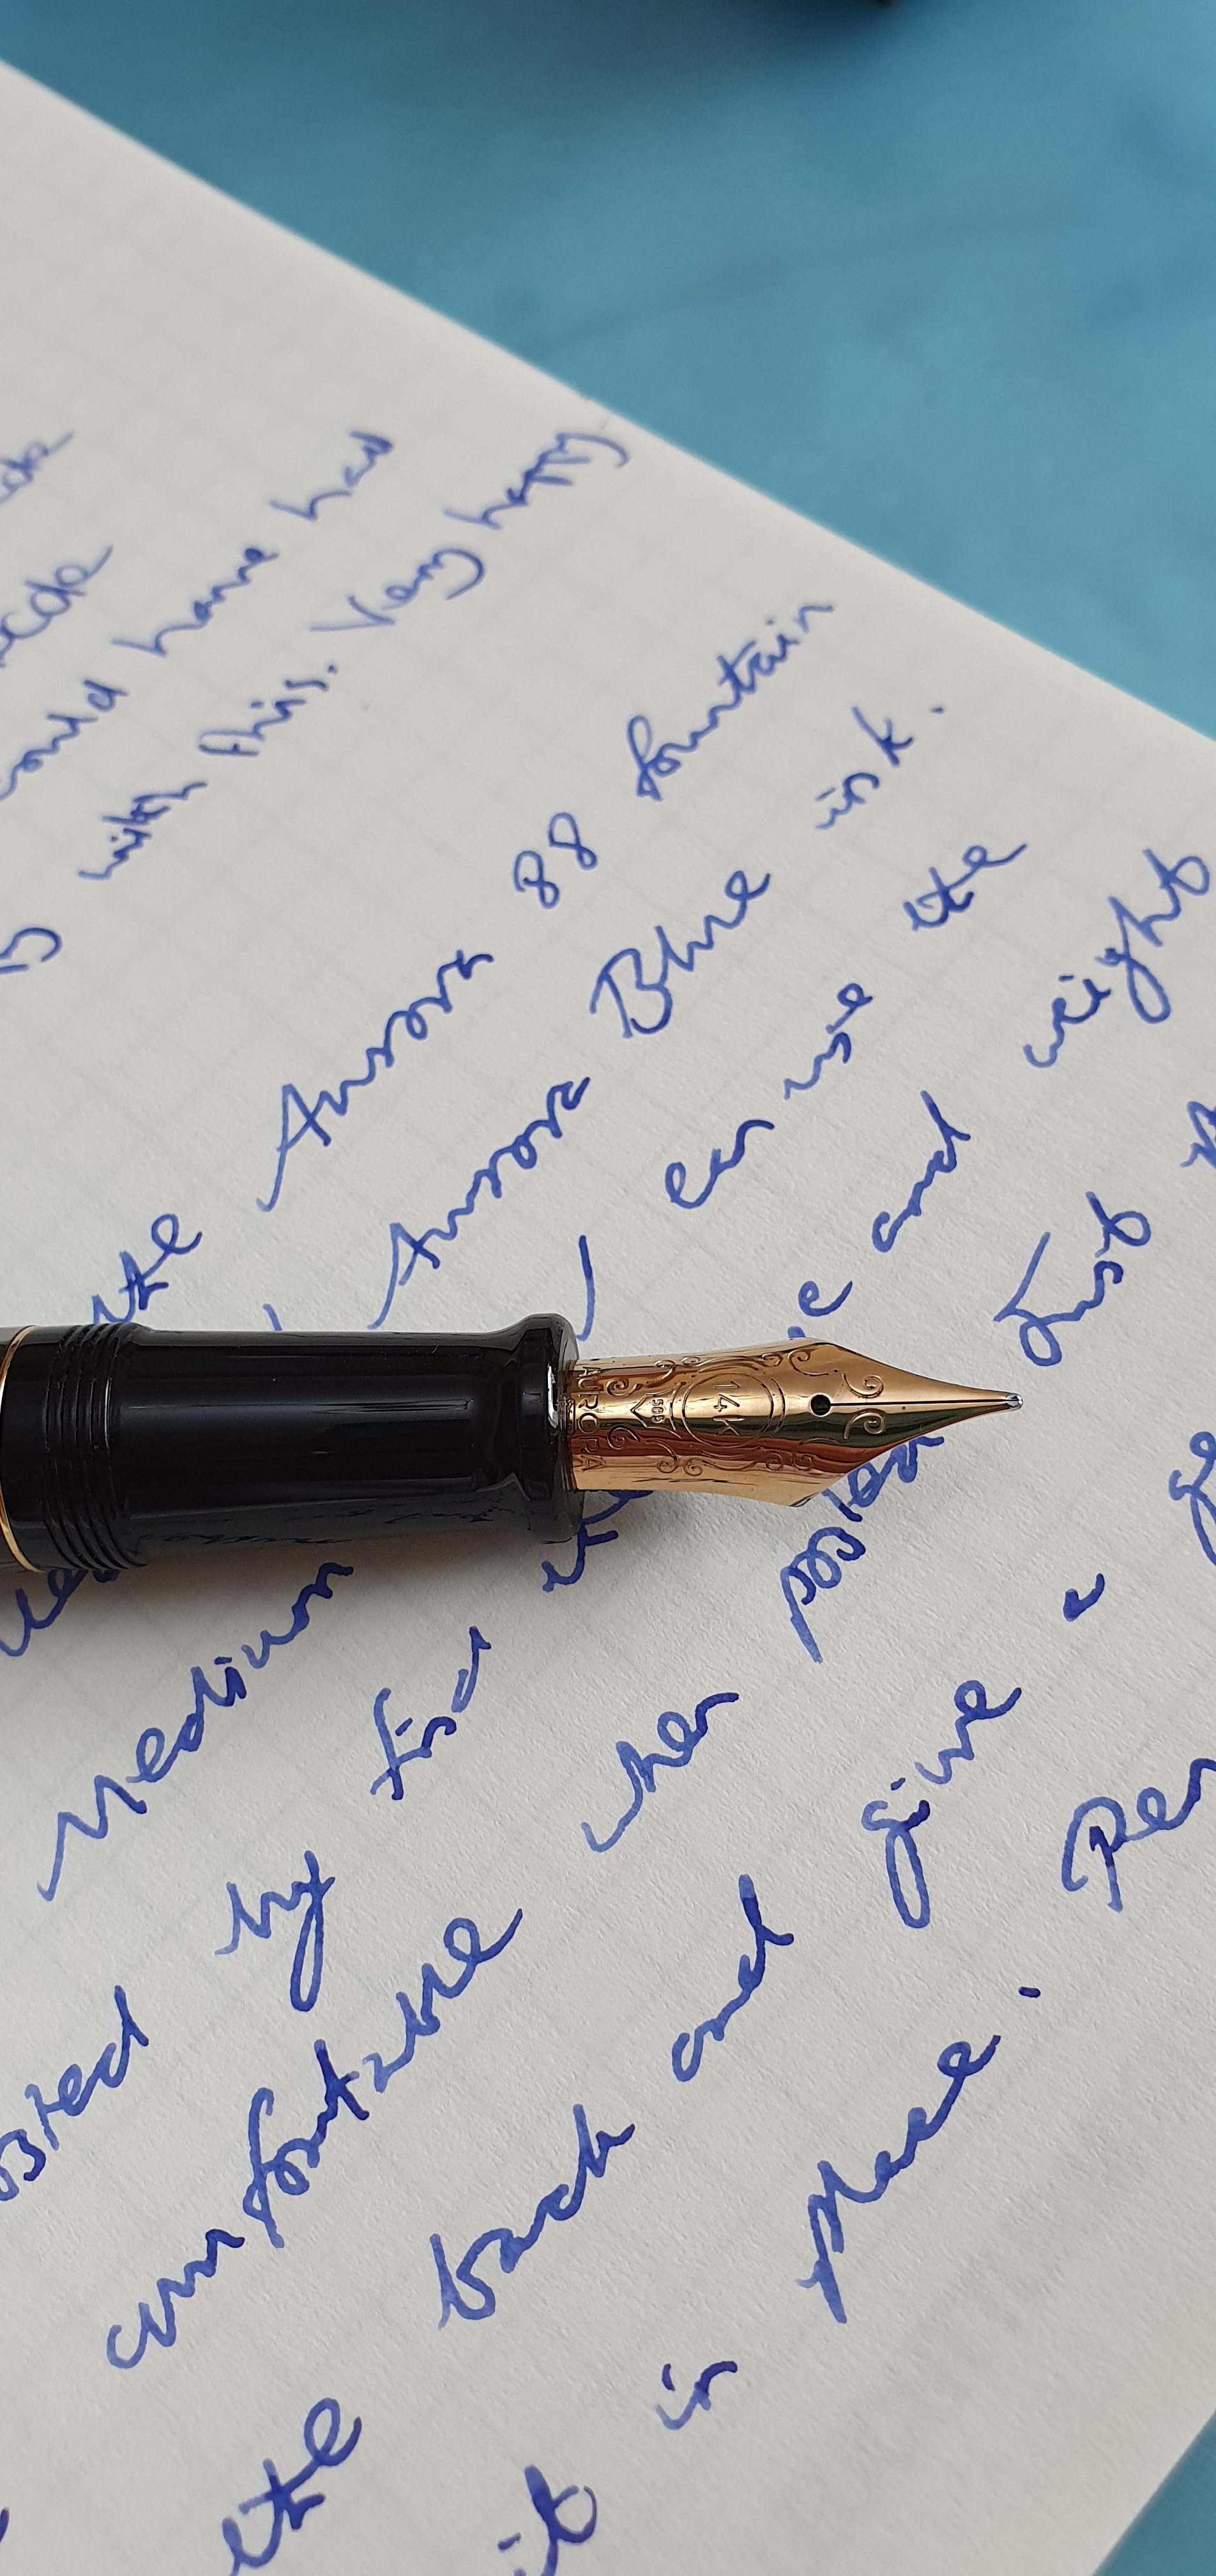 would have had
with this. Very happy
the Aurora 88 fountain
Aurora Blue ink.
Medium can use the
posted find the and weight
comfortable when posted Just
the back and give a
it in place. Pen
AURORA 585 14K